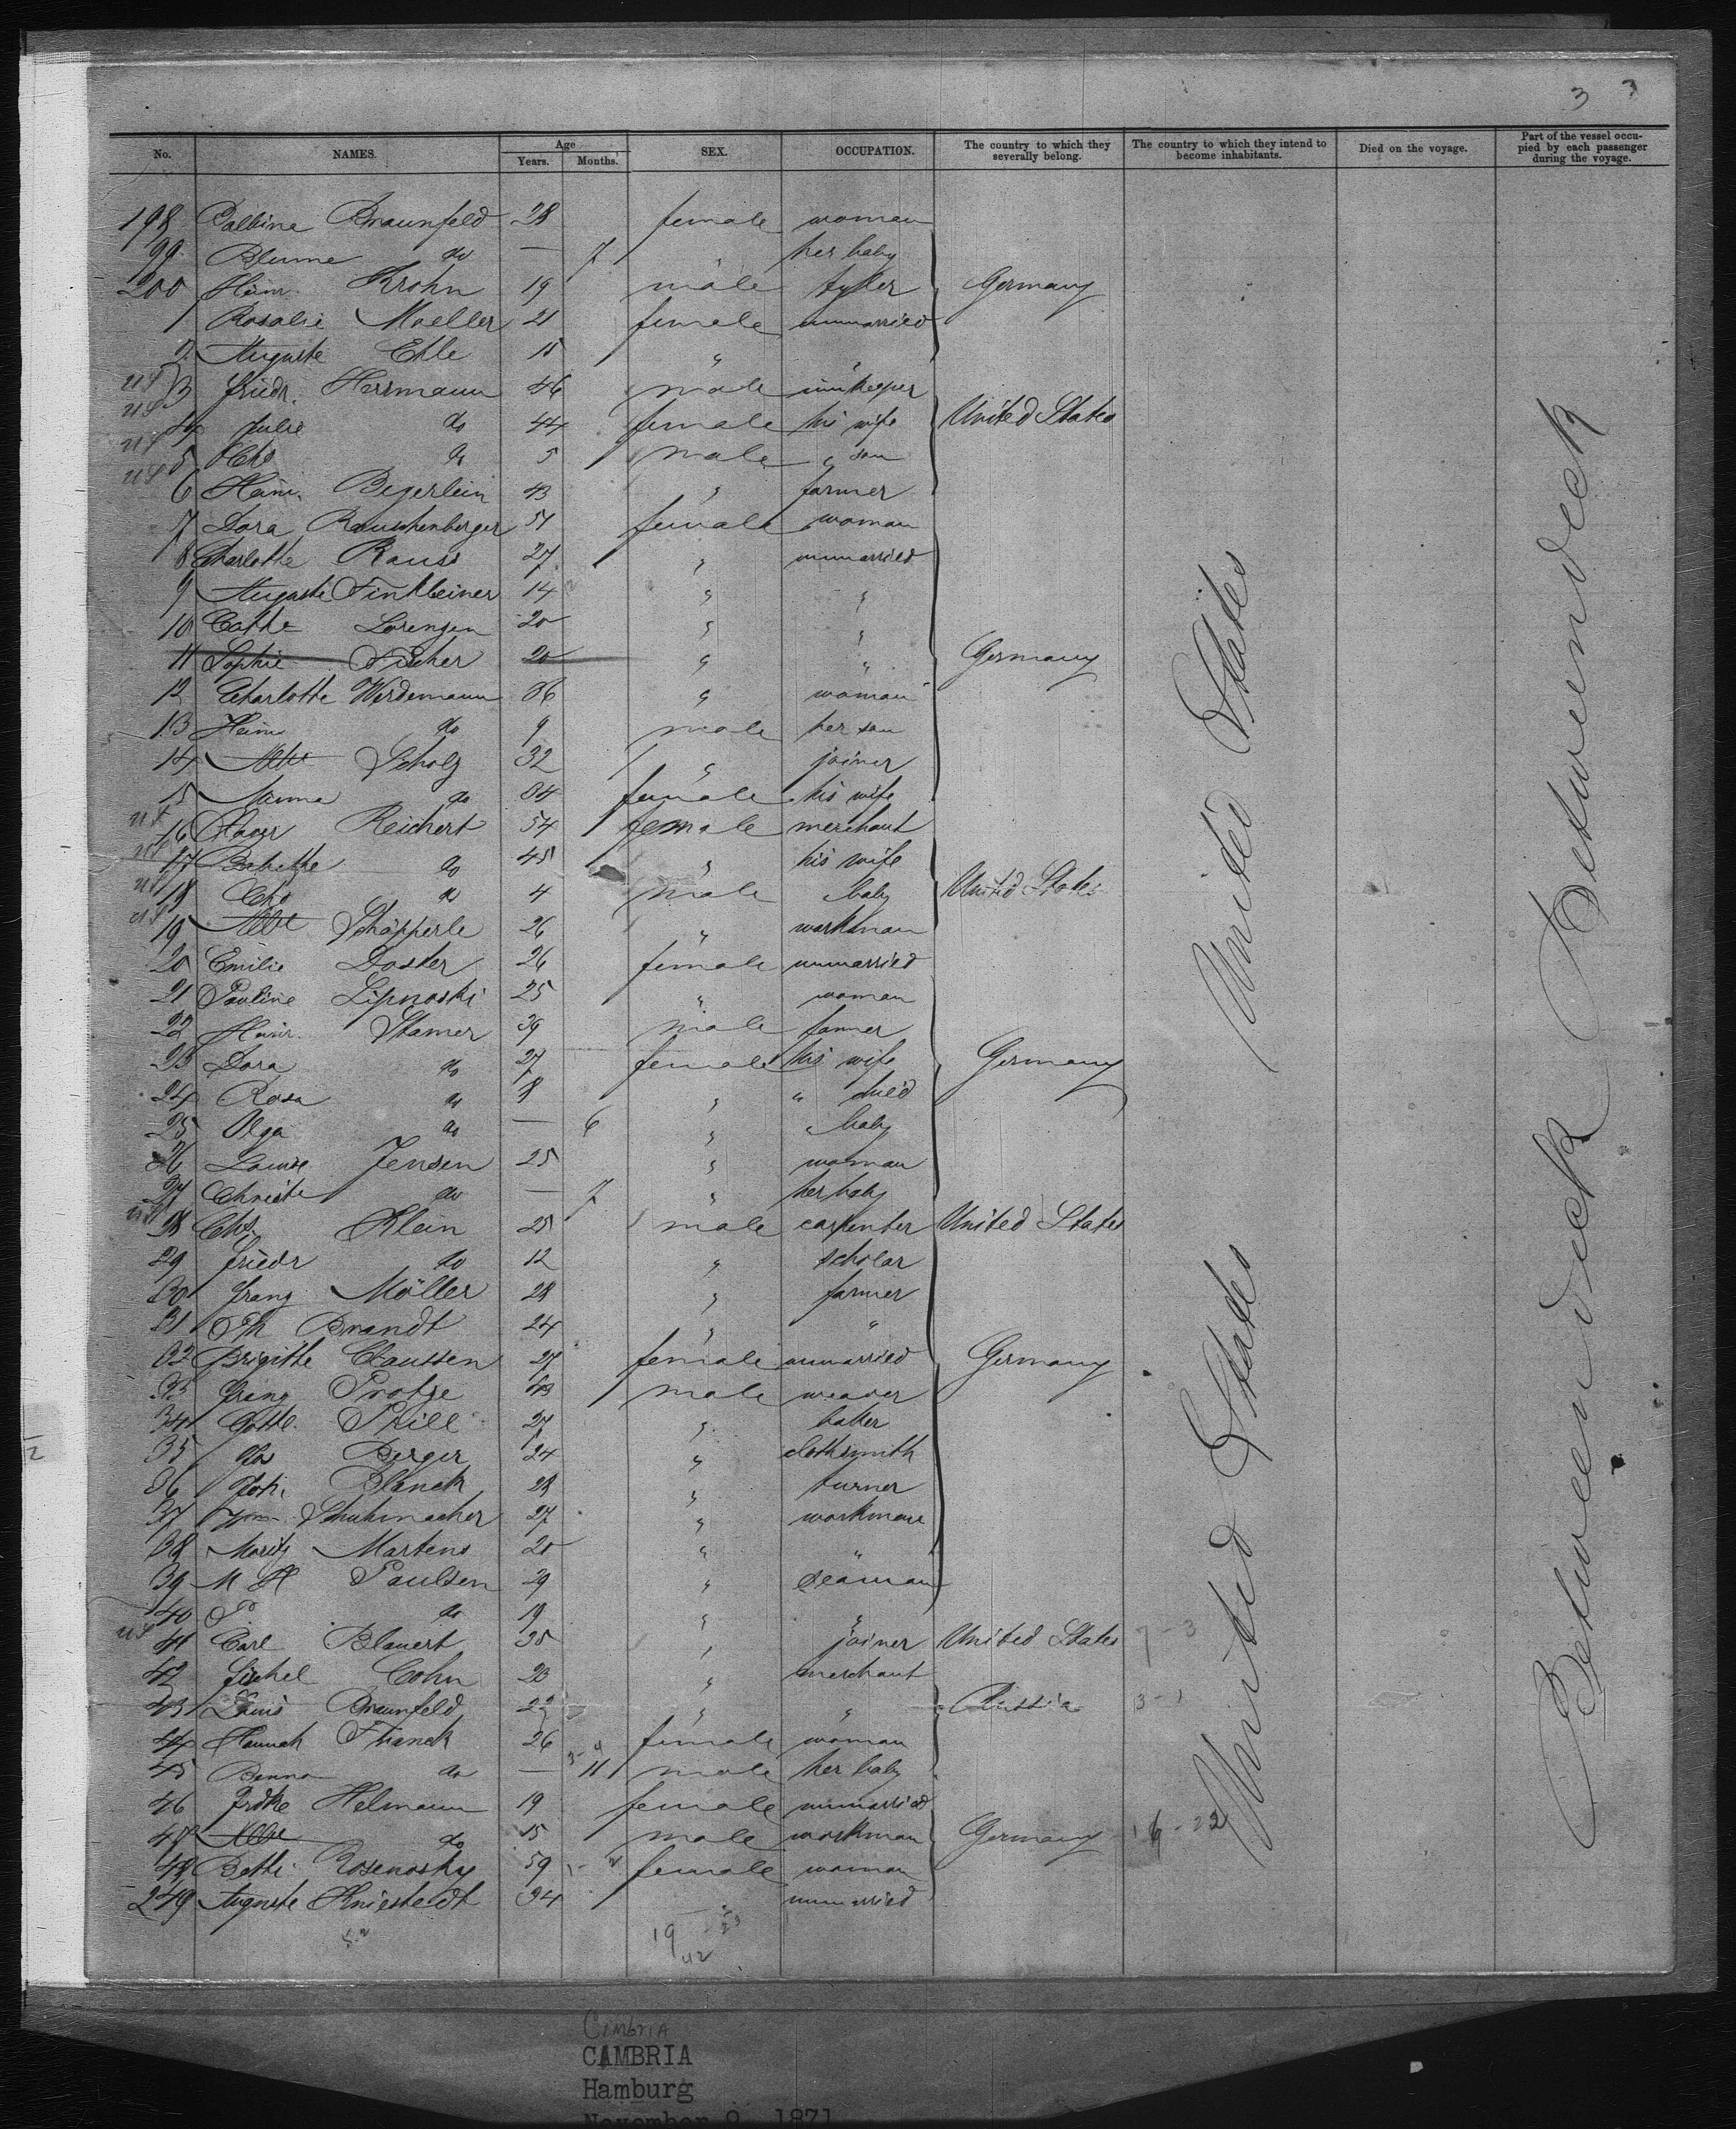 3 3
No. NAMES. Age Years. Months. SEX. OCCUPATION. The country to which they severally belong. The country to which they intend to become inhabitants. Died on the voyage. Part of the vessel occupied by each passenger during the voyage.
198 Balbina Braunfeld 28 female woman
99 Blume do — 7 " her baby
200 Heinr. Krohn 19 male Germany
1 Rosalie Moeller 21 female unmarried
2 Auguste Ehle 15 " "
US 3 Friedr. Herrmann 46 male innkeeper
US 4 Julie do 44 female his wife United States
US 5 do 5 male " son
US 6 Heinr. Begerlein 43 " farmer
7 Dora Rauschenberger 51 female woman
8 Charlotte Rauss 27 " unmarried
9 Auguste Finkbeiner 14 " "
10 Cathe Lorenzen 20 " "
11 Sophie Fischer 20 " " Germany
12 Charlotte Werdemann 36 " woman
13 Heinr do 9 male her son
14 Scholz 32 " joiner
15 Minna do 34 female his wife
US 16 Reichert 54 female merchant
US 17 Babette do 45 " his wife
US 18 do 4 male baby United States
US 19 Schöpperle 26 " workman
20 Emilie Doster 26 female unmarried
21 Pauline Lipnoski 25 " woman
22 Heinr. Stamer 39 male farmer
23 Dora do 27 female his wife Germany
24 Rosa do 8 " "
25 Olga do — 6 " baby
26 Louise Jensen 25 " woman
27 Christe do — 7 " her baby
US 28 Chs. Klein 25 male carpenter United States
29 Friedr do 12 " scholar
30 Franz Möller 28 " farmer
31 Th Brandt 24 " "
32 Brigitte Claussen 27 female unmarried Germany
33 Franz Protze male weaver
34 Gottl. Prill 27 " baker
35 Berger 24 "
36 Joh. Blanck 28 " turner
37 Wm. Schuhmacher 27 " workman
38 Moritz Martens 20 " "
39 M H Paulsen 29 " seaman
40 P do 19 " "
US 41 Carl Blauert 35 " joiner United States 7-3
42 Fischel Cohn 23 " merchant
43 Louis Braunfeld 22 " " Russia 3-1
44 Hannah Franck 26 female woman
45 Benno do — 11 male her baby
46 Frdke Helmann 19 female unmarried
47 do 15 male workman Germany 16-22
48 Betti Rosenosky 59 female woman
249 Auguste Kniestedt 34 " unmarried
United States
United States
Between deck Between deck
19
42
Cimbria
CAMBRIA
Hamburg
November 9, 1871